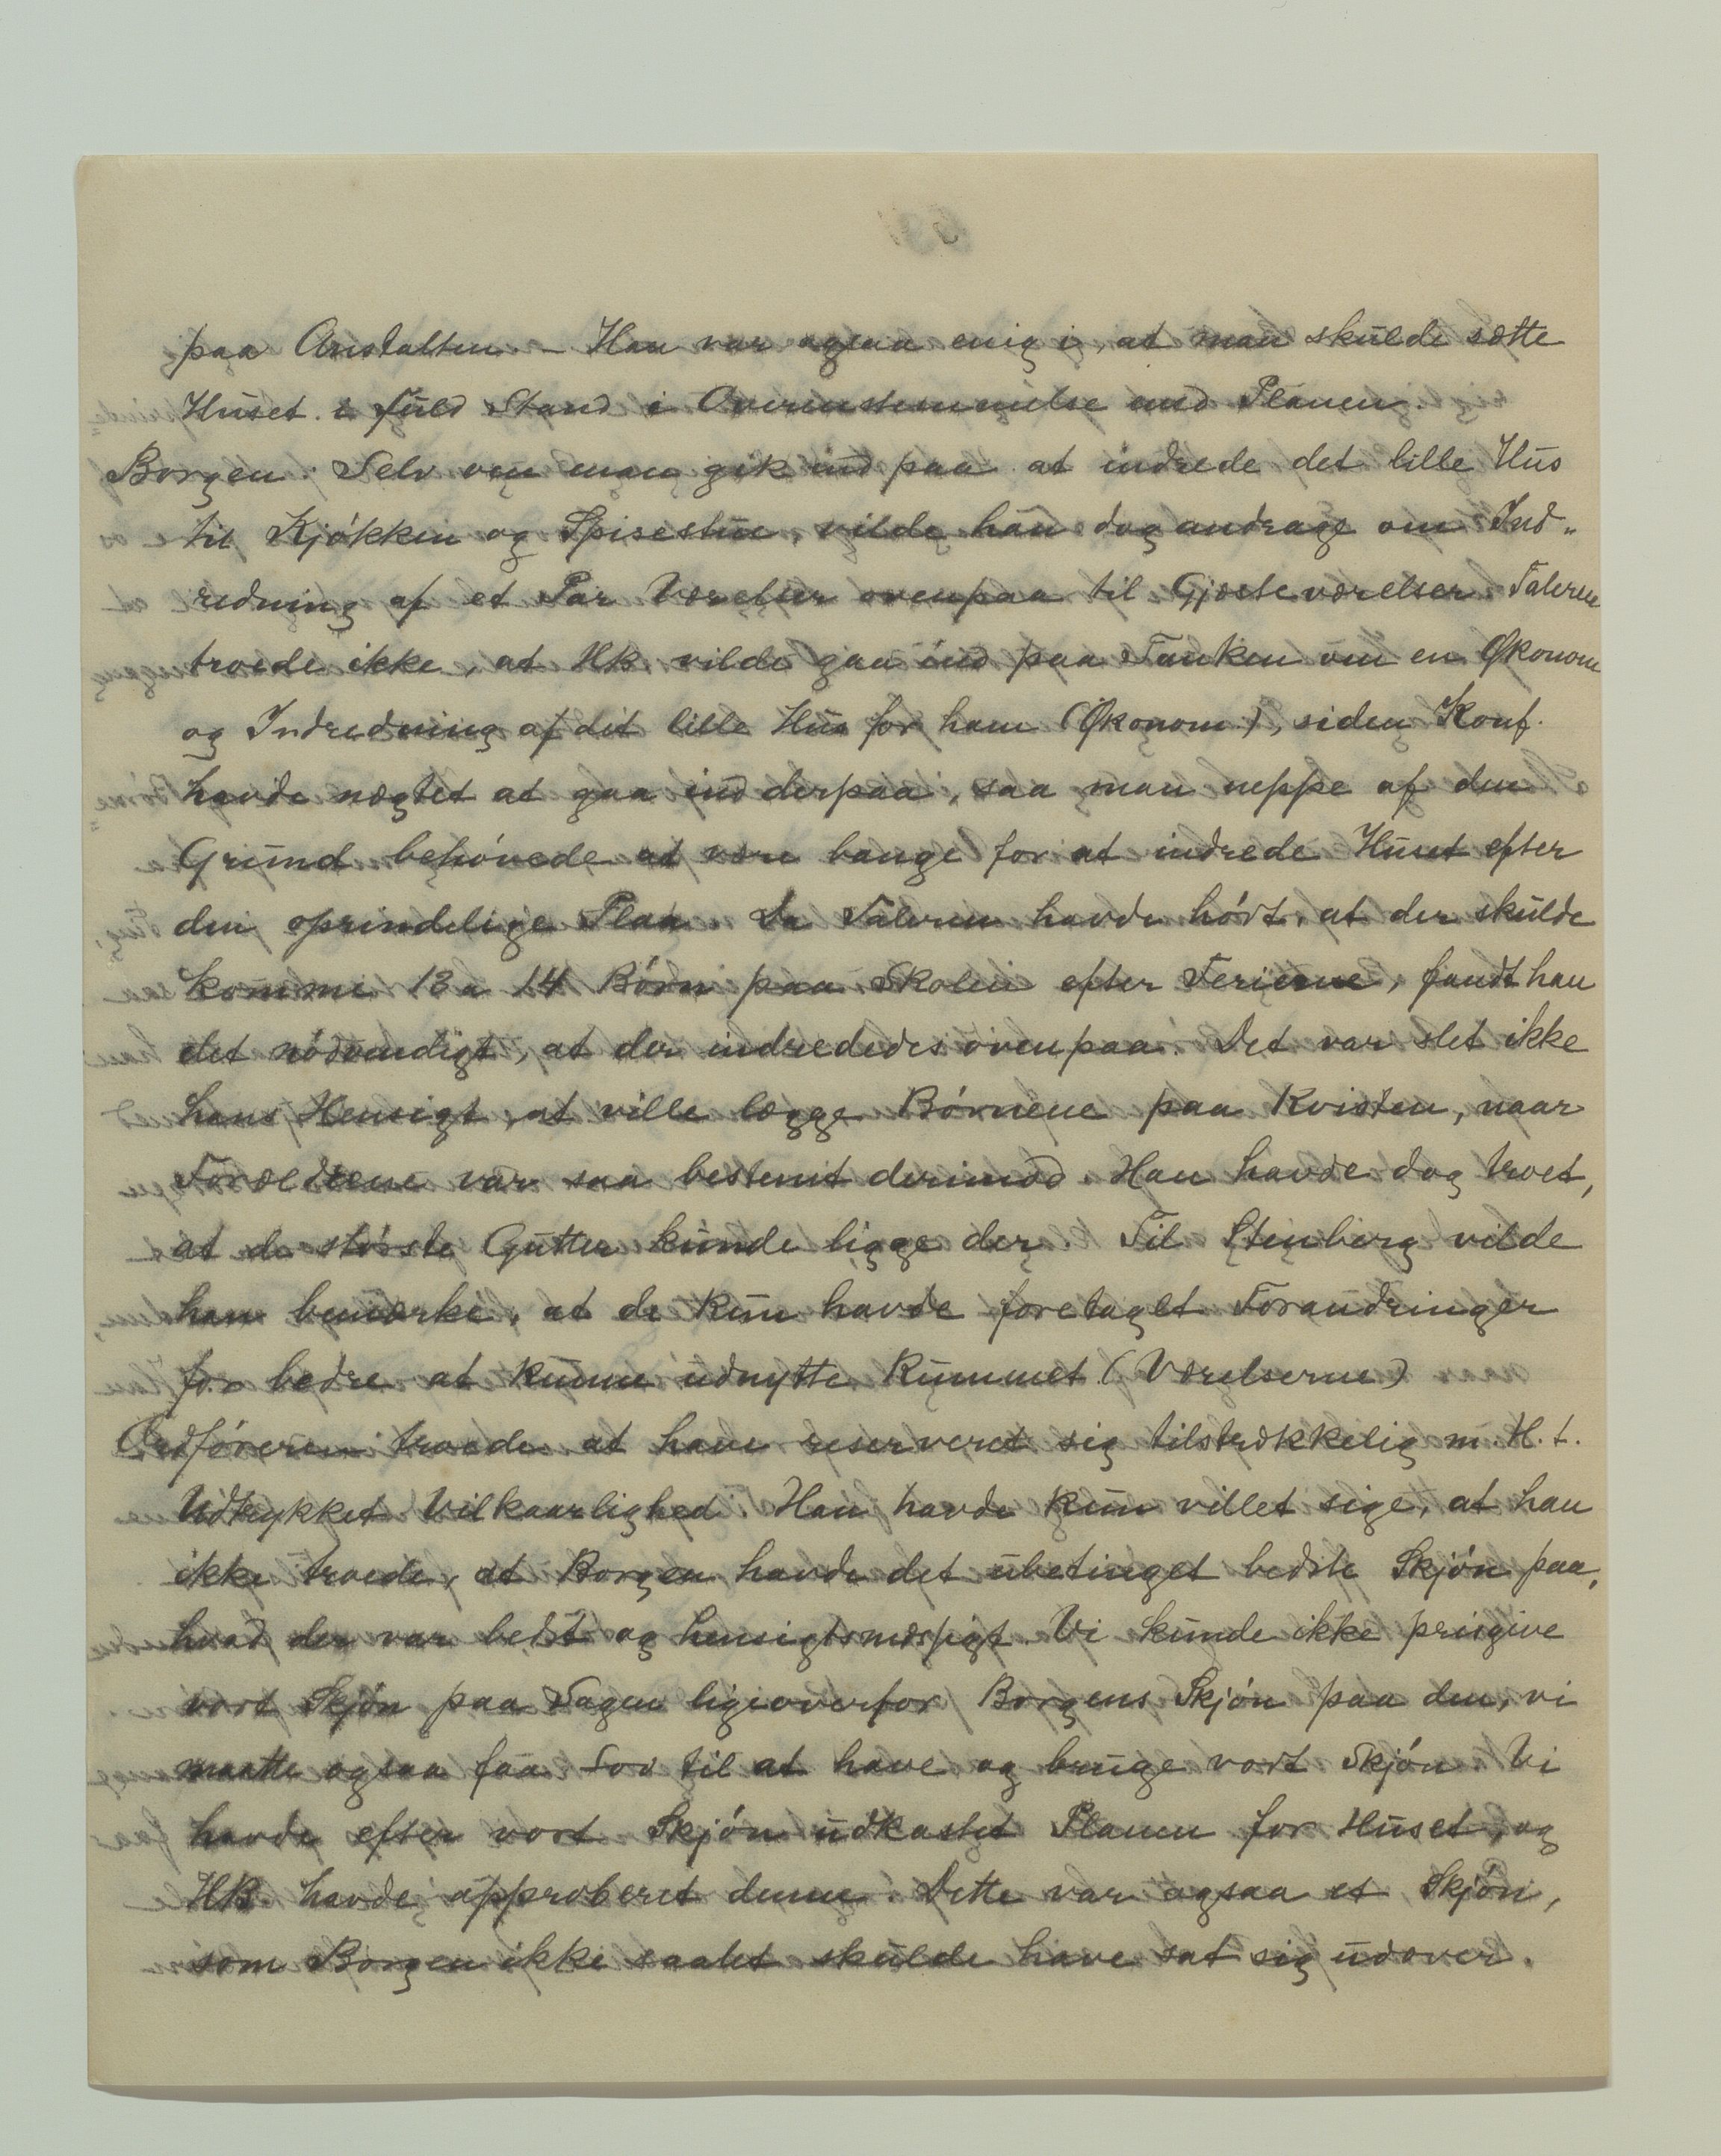 paa Anstalten. – Han var ogsaa enig i, at man skulde sætte
Huset i fuld Stand i Overensstemmelse med Planen.
Borgen. Selv om man gik ind paa at indrede det lille Hus
til Kjøkken og Spisestue, vilde han dog andrage om Ind-
redning af et Par Værelser ovenpaa til Gjæsteværelser. Taleren
troede ikke, at HB vilde gaa ind paa Tanken om en Økonom
og Indredning af det lille Hus for ham (Økonom.), siden Konf.
havde nægtet at gaa ind derpaa, saa man neppe af den
Grund behøvede at være bange for at indrede Huset efter
den oprindelige Plan. Da Taleren havde hørt, at der skulde
komme 13 a 14 Børn paa Skolen efter Ferierne, fandt han
det nødvendigt, at der indrededes ovenpaa. Det var slet ikke
hans Hensigt, at ville lægge Børnene paa Kvisten, naar
Forældrene var saa bestemt derimod. Han havde dog troet,
at de største Gutter kunde ligge der. Til Stenberg vilde
han bemærke, at de kun havde foretaget Forandringer
for bedre at kunne udnytte Rummet (Værelserne)
Ordføreren troede at have reserveret sig tilstrækkelig m. H. t.
Udtrykket Vilkaarlighed. Han havde kun villet sige, at han
ikke troede, at Borgen havde det ubetinget bedste Skjøn paa,
hvad der var bedst og hensigtsmæssigt. Vi kunde ikke prisgive
vort Skjøn paa Sagen ligeoverfor Borgens Skjøn paa den, vi
maatte ogsaa faa Lov til at have og bruge vort Skjøn. Vi
havde efter vort Skjøn udkastet Planen for Huset, og
HB. havde approberet denne. Dette var ogsaa et Skjøn,
som Borgen ikke saalet skulde have sat sig udover.